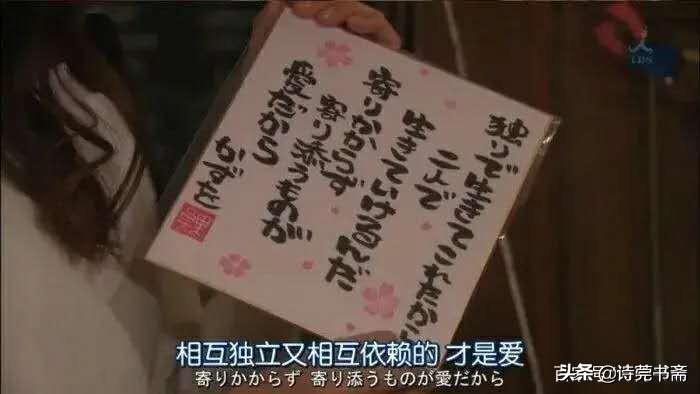 独りで生きてこれたから
二人で
生きていけるんだ
寄りかからず
寄り添うものが
愛だから
かずを
TBS
相互独立又相互依赖的 才是爱
寄りかからず 寄り添うものが愛だから
头条 @诗莞书斋